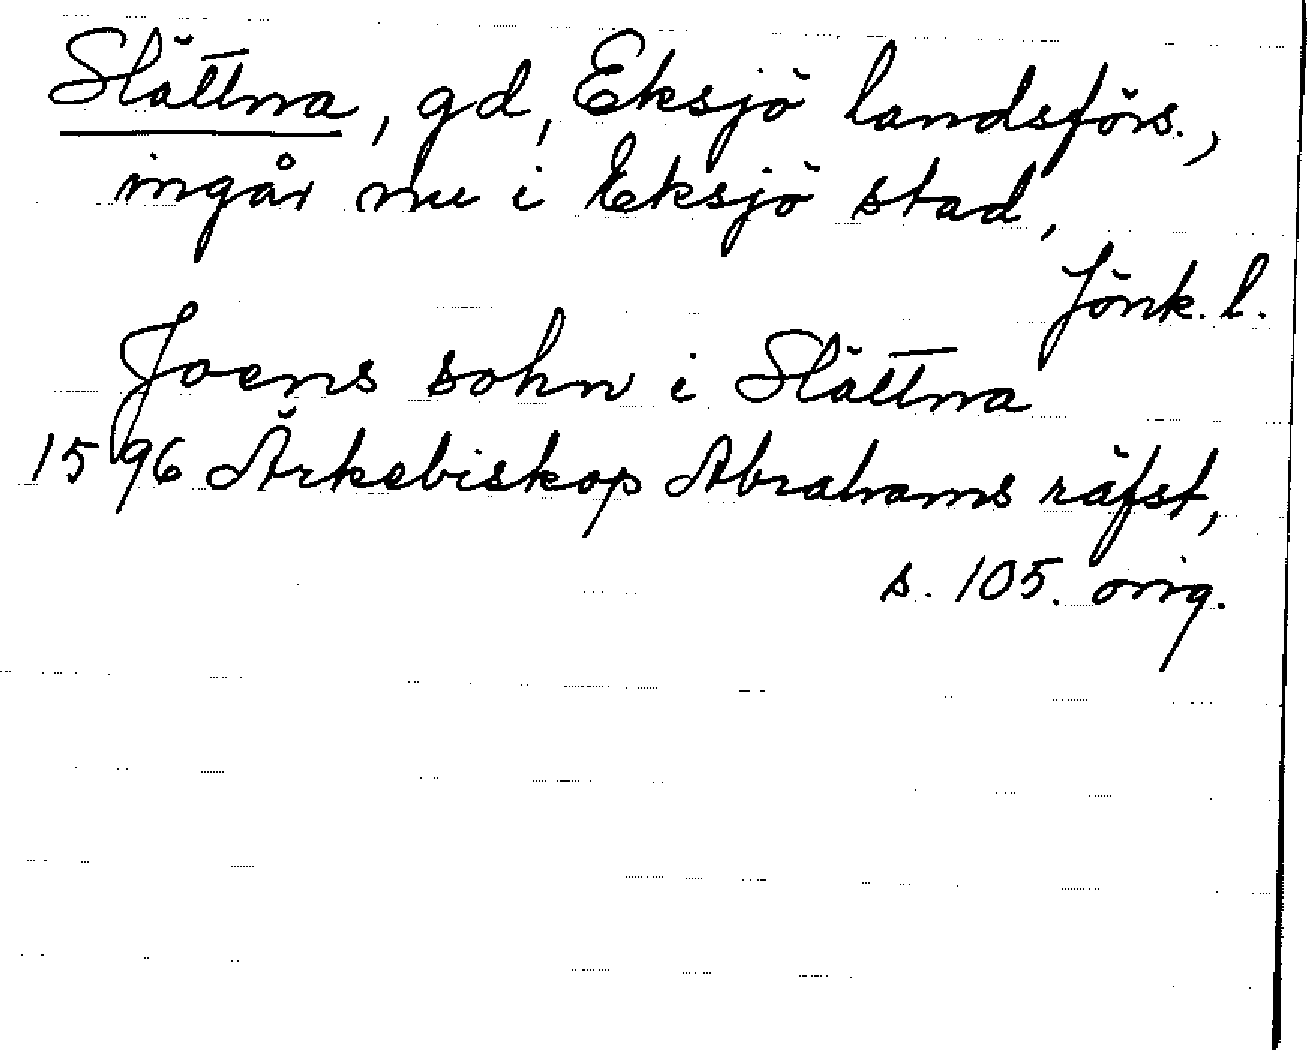 Slättna, gd, Eksjö landsförs.,
ingår nu i Eksjö stad,
Jönk. l.
Joens sohn i Slättna
1596 Ärkebiskop Abrahams räfst,
s. 105. orig.